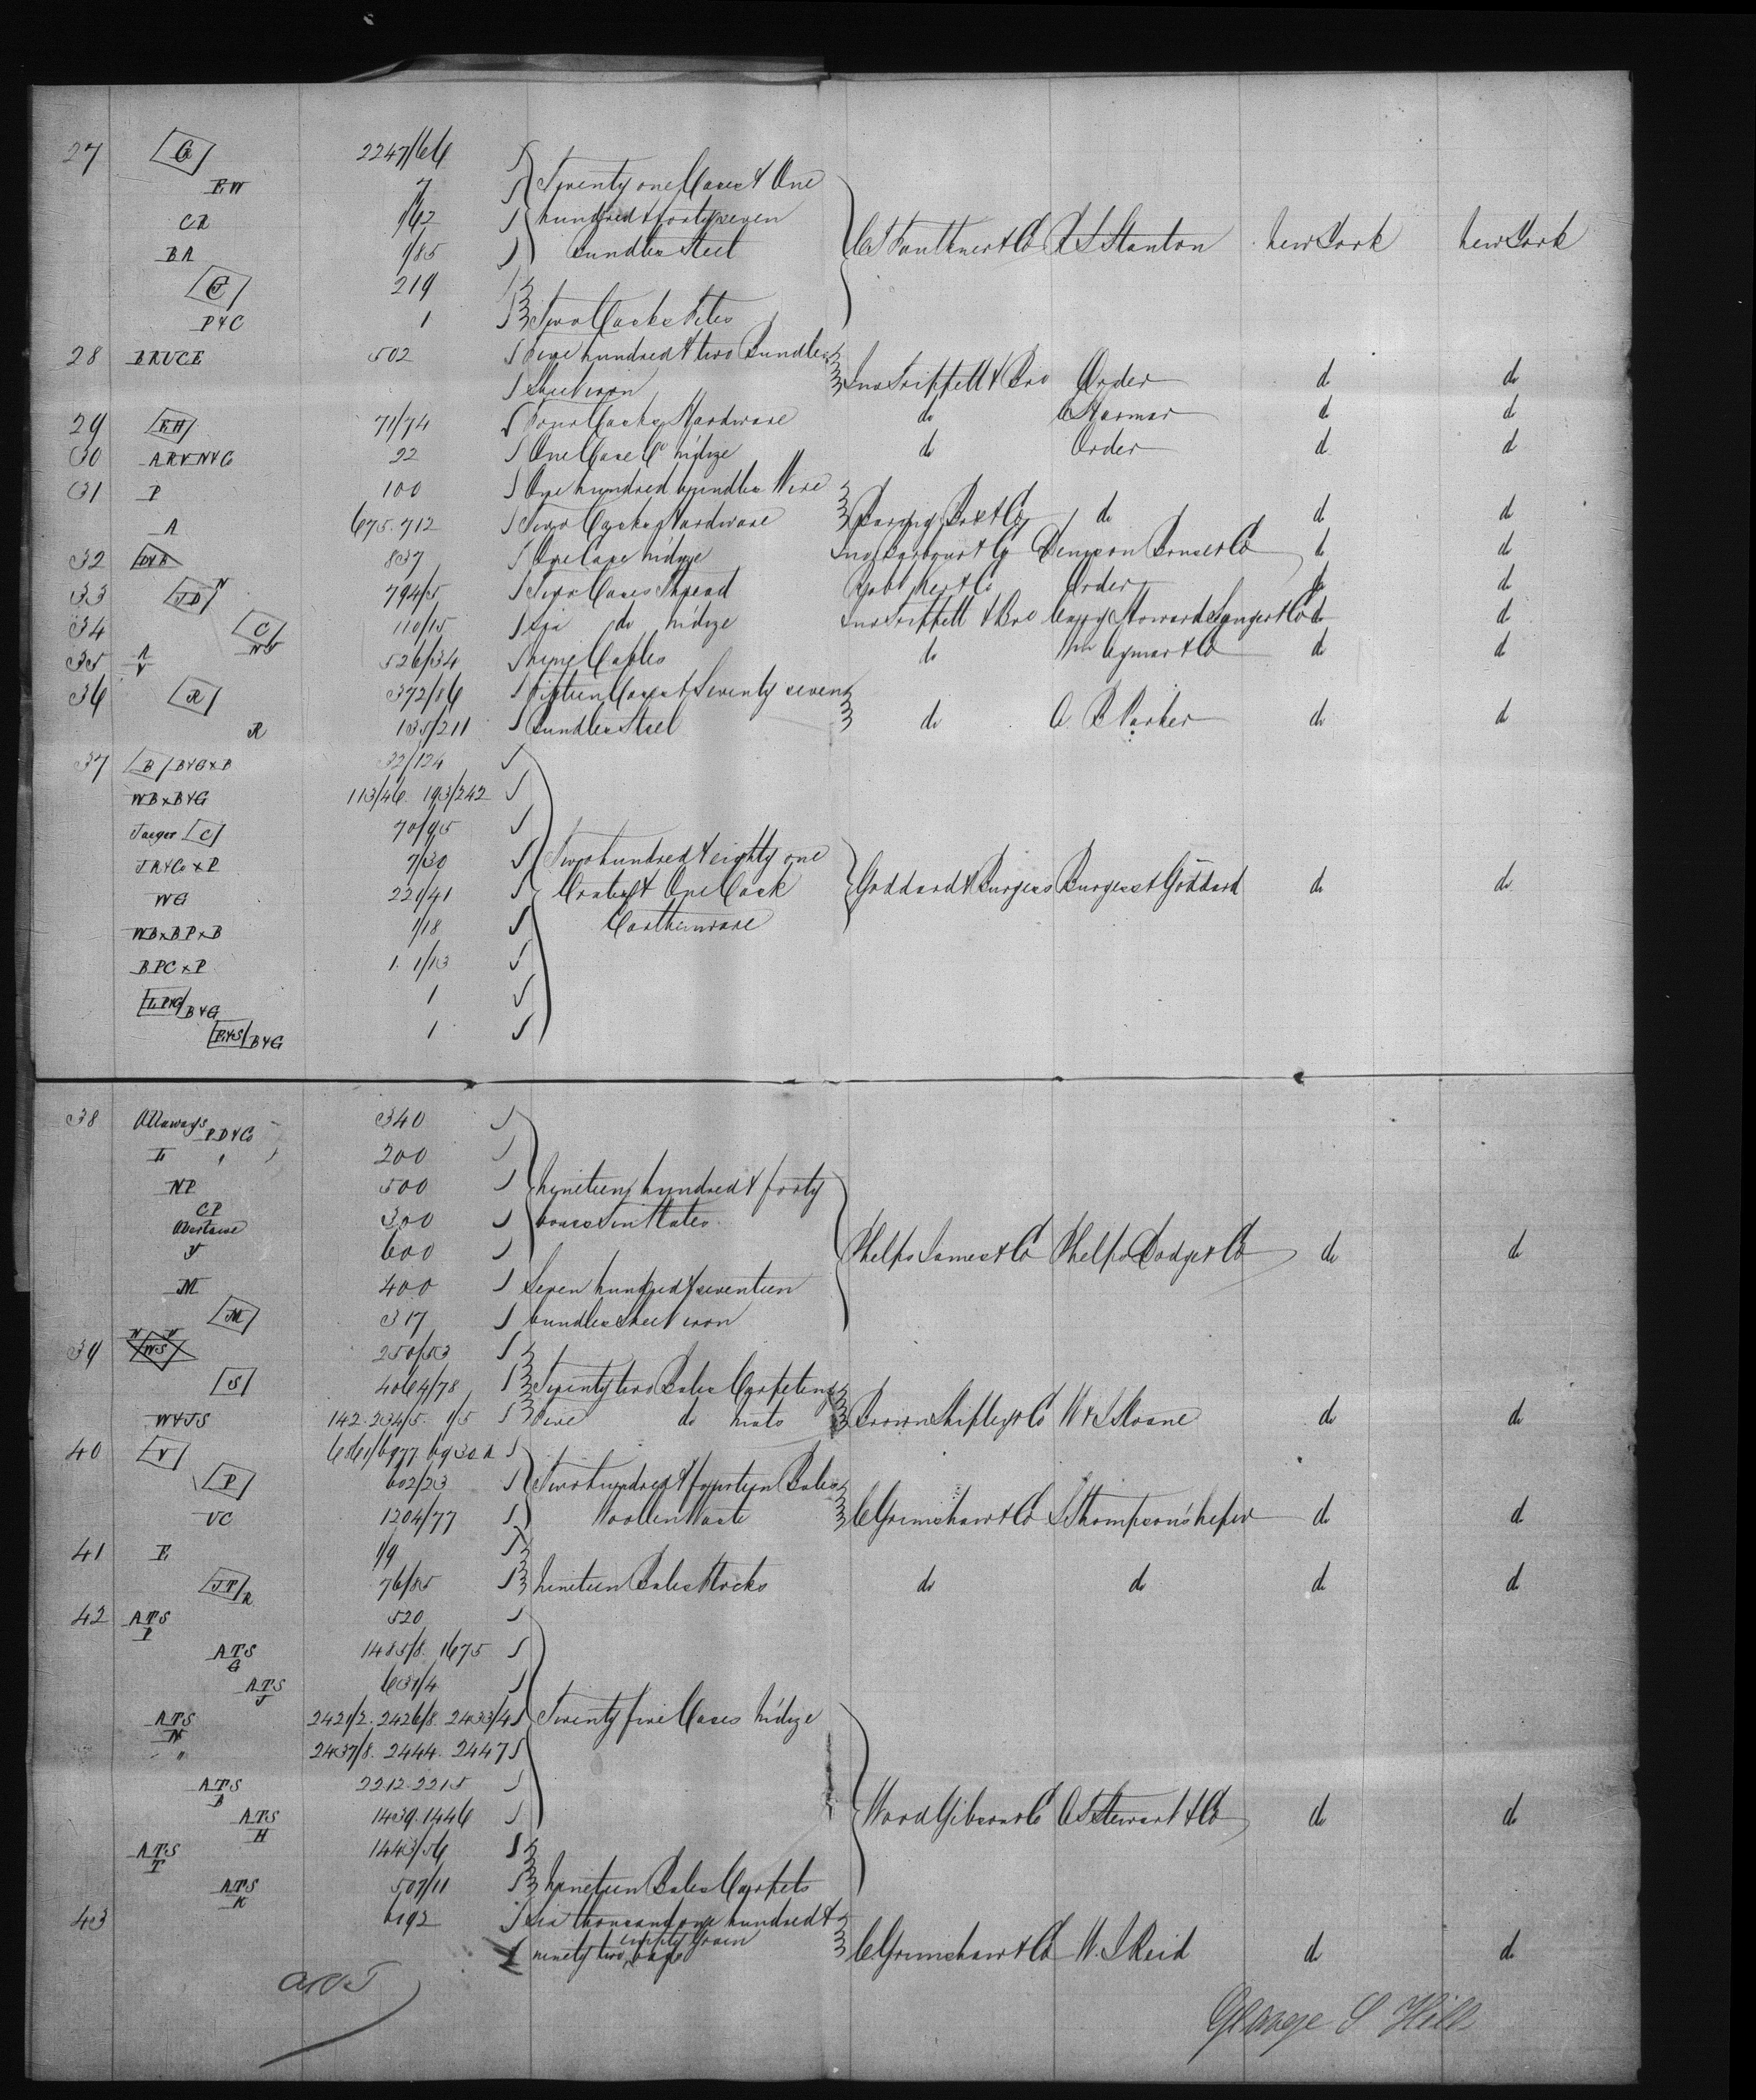 27 G 2247/66
EW 7 Twenty one Cases & One
CR 1/62 hundred & forty seven
BA 1/85 Bundles Steel C T Faulkner & Co R L Stanton New York New York
C 219
P&C 1 Two Casks Files
28 BRUCE 502 Five hundred & two Bundles
Sheet iron Jno Trippett & Bro Order do do
29 EH 71/74 Four Casks Hardware do do do
30 22 One Case mdze do Order do do
31 P 100 One hundred bundles Wire
A 675. 712 Two Casks Hardware Baring Bro & Co do do do
32 837 One Case mdze Denison & Co do do
33 JD 794/5 Two Cases Thread Order do do
34 C 110/15 Six do mdze Jno Trippett & Bro Howard Sanger & Co do do
35 A V 526/34 Nine Cables do Wm Aymar & Co do do
36 R 372/86 Fifteen Cases & Seventy seven
R 135/211 Bundles Steel do A. B Parker do do
37 B B&G×B 32/124
WB×B&G 113/46. 193/242
Jaeger C 70/95
JR&Co×P 7/30 Two hundred & eighty one
WG 221/41 Crates & One Cask Goddard & Burgess Burgess & Goddard do do
WB×BP×B 1/18 Earthenware
BPC×P 1. 1/13
B&G 1
B&G 1
38 Allaways PD&Co 340
L " 200
NP 500 Nineteen hundred & forty
CP 300 boxes Tin Plates
Y 600 Phelps James & Co Phelps Dodge & Co do do
M 400 Seven hundred & seventeen
M 317 bundles sheet iron
39 WS 250/53
S 4064/78 Twenty two Bales Carpeting
W&JS 142. 234/5. 1/5 Five do mats Brown Shipley & Co W & J Sloane do do
40 V 6861/6977 6930A
P 602/23 Two hundred & fourteen Bales
VC 1204/77 Woollen Waste C Grimshaw & Co do do
41 E 1/9
JP R 76/85 Nineteen Bales Flocks do do do do
42 ATS P 520
ATS G 1485/8. 1675
ATS J 631/4
ATS N 2421/2. 2426/8. 2433/4 Twenty five Cases mdze
" 2437/8. 2444. 2447
ATS B 2212. 2215
ATS H 1439. 1446 Wood Gibson & Co A T Stewart & Co do do
ATS T 1443/56
ATS K 507/11 Nineteen Bales Carpets
43 6192 Six thousand one hundred &
empty Grain
ninety two bags C Grimshaw & Co W. J Reid do do
George S Hill